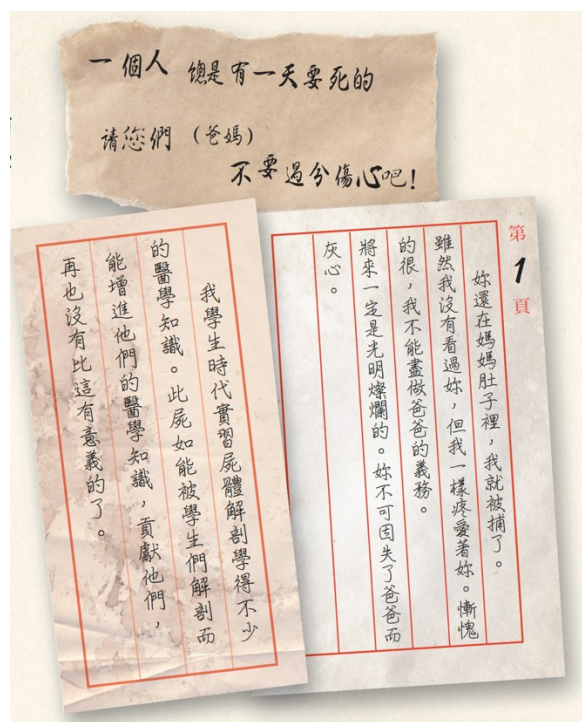 一個人 總是有一天要死的
請您們（爸媽）
不要過分傷心吧！
第1頁
妳還在媽媽肚子裡，我就被捕了。
雖然我沒有看過妳，但我一樣疼愛著妳。慚愧
的很，我不能盡做爸爸的義務。
將來一定是光明燦爛的。妳不可因失了爸爸而
灰心。
我學生時代實習屍體解剖學得不少
的醫學知識。此屍如能被學生們解剖而
能增進他們的醫學知識，貢獻他們，
再也沒有比這有意義的了。